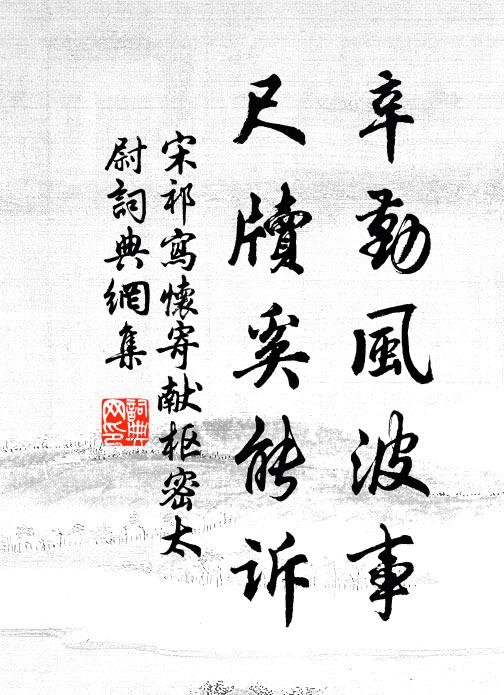 辛勤風波事
尺牘奚能訴
宋祁寫懷寄献枢密太
尉詞典網集
詞典网印